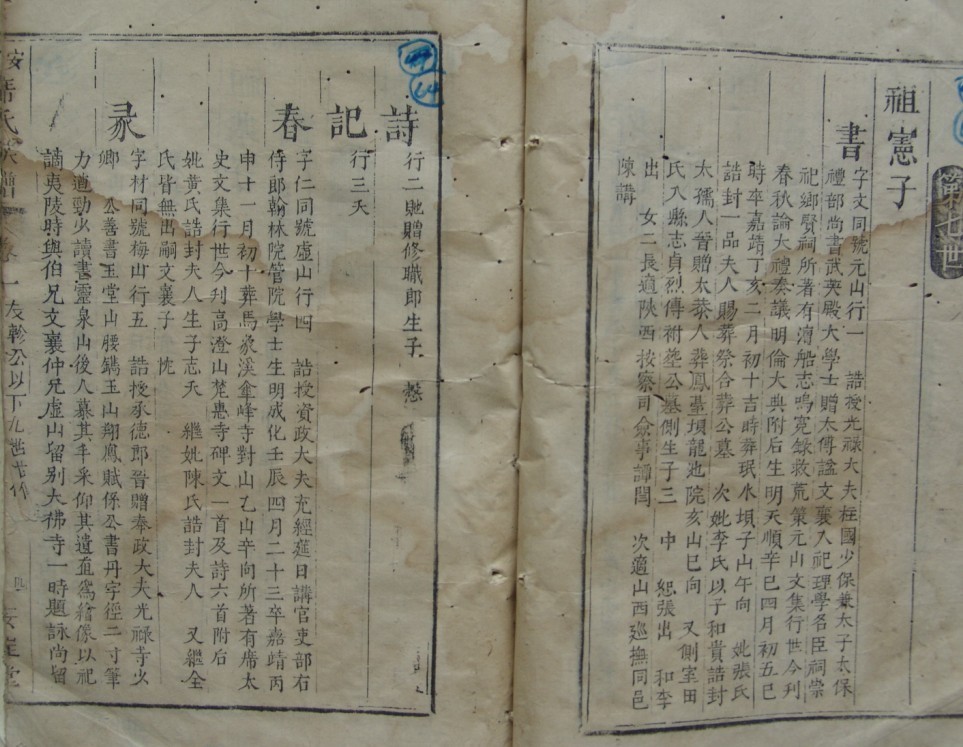 第七世
祖憲子
書
字文同號元山行一 誥授光祿大夫柱國少保兼太子太保
禮部尚書武英殿大學士贈太傅諡文襄入祀理學名臣祠崇
祀鄉賢祠所著有漕船志鳴冤錄救荒策元山文集行世今刋
春秋論大禮奏議明倫大典附后生明天順辛巳四月初五巳
時卒嘉靖丁亥二月初十吉時葬珉水垻子山午向 妣張氏
誥封一品夫人賜葬祭合葬公墓 次妣李氏以子和貴誥封
太孺人晉贈太恭人葬鳳臺垻龍池院亥山巳向 又側室田
氏入縣志貞烈傳祔塟公墓側生子三 中 恕張出 和李
出 女二長適陝西按察司僉事譚誾 次適山西巡撫同邑
陳講
詩
行二貤贈修職郎生子 愸
記
行三夭
春
字仁同號虛山行四 誥授資政大夫充經筵日講官吏部右
侍郎翰林院管院學士生明成化壬辰四月二十三卒嘉靖丙
申十一月初十葬馬象溪傘峰寺對山乙山辛向所著有席太
史文集行世今刋高澄山楚惠寺碑文一首及詩六首附后
妣黃氏誥封夫人生子志夭 繼妣陳氏誥封夫人 又繼全
氏皆無出嗣文襄子 忱
彖
字材同號梅山行五 誥授承德郎晉贈奉政大夫光祿寺少
卿 公善書玉堂山腰鐫玉山翔鳳賦係公書丹字徑二寸筆
力遒勁少讀書靈泉山後人慕其丰采仰其遺直爲繪像以祀
謫夷陵時與伯兄文襄仲兄虛山留别大彿寺一時題詠尚留
卷一友軫公以下九世